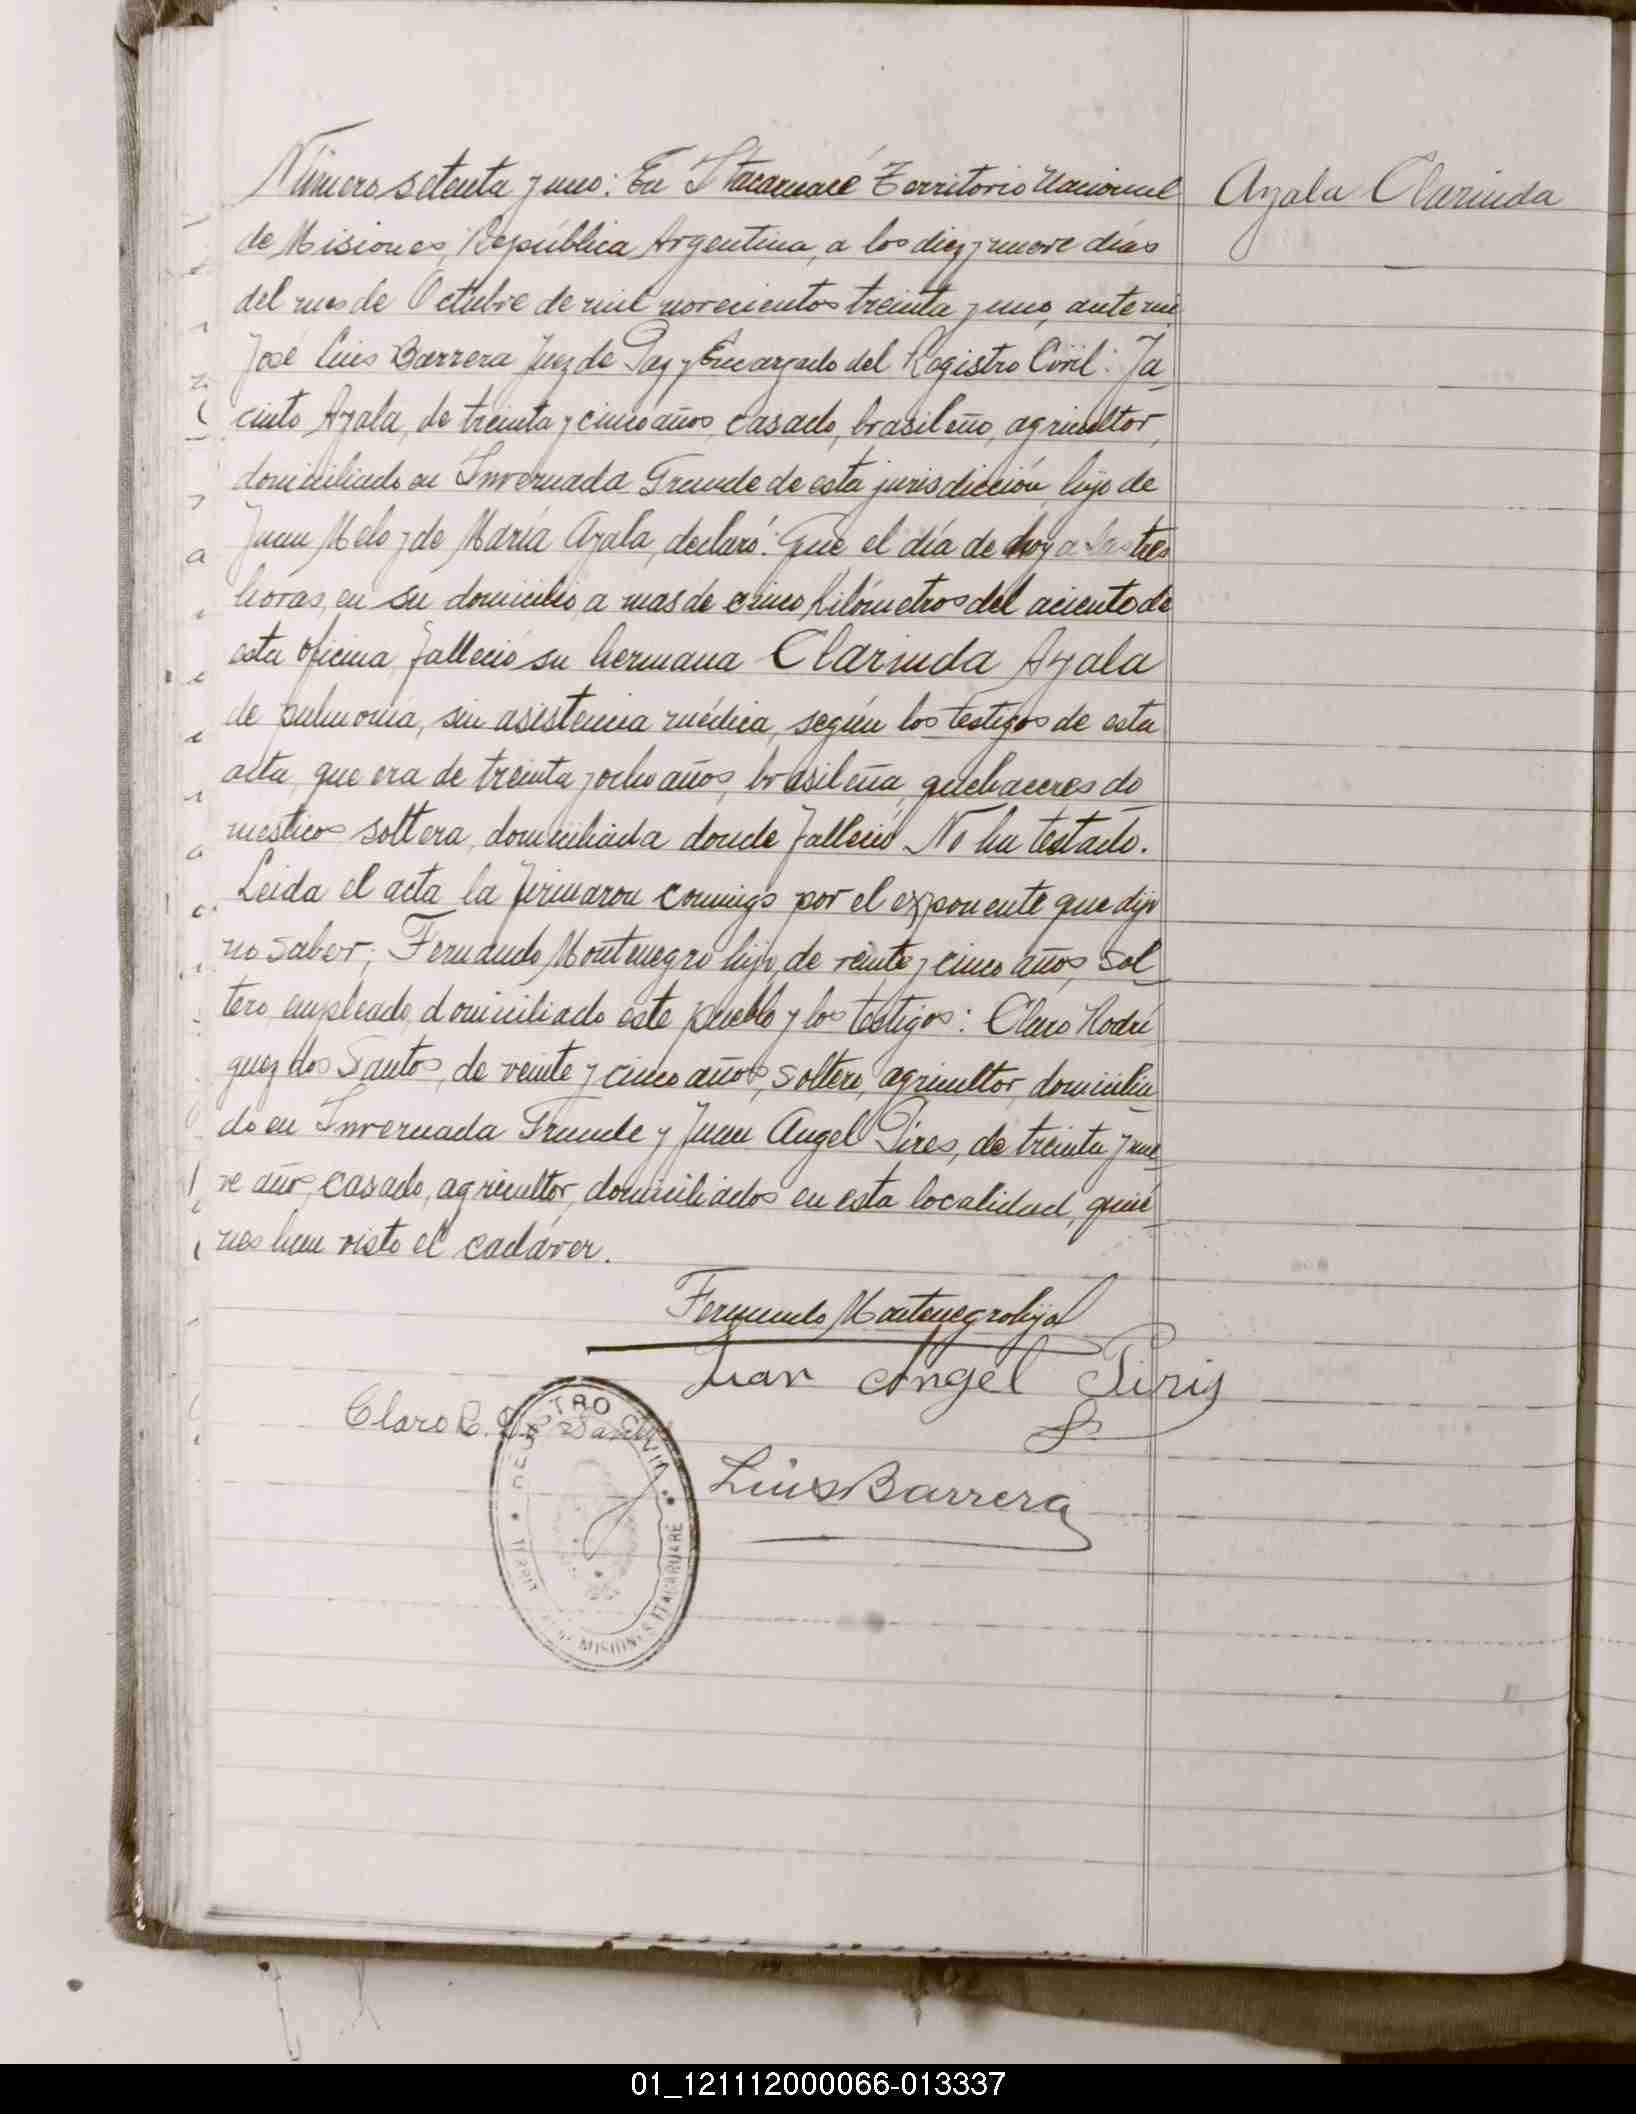 Número setenta y uno: En Itacaruaré Territorio Nacional
Ayala Clarinda
de Misiones, República Argentina, a los diez y nueve días
del mes de Octubre de mil novecientos treinta y uno, ante mi
José Luis Barrera Juez de Paz y Encargado del Registro Civil: Ja_
cinto Ayala, de treinta y cinco años, casado, brasileño, agricultor,
domiciliado en Invernada Grande de esta jurisdicción, hijo de
Juan Melo y de María Ayala, declaró: Que el día de hoy a las tres
horas, en su domicilio, a mas de cinco kilómetros del aciento de
esta oficina, falleció su hermana Clarinda Ayala
de pulmonía, sin asistencia médica, según los testigos de esta
acta, que era de treinta y ocho años, brasileña, quehaceres do_
mésticos soltera, domiciliada donde falleció No ha testado.
Leida el acta la firmaron conmigo por el exponente que dijo
no saber; Fernando Montenegro hijo, de veinte y cinco años, sol_
tero, empleado, domiciliado este pueblo y los testigos: Claro Rodrí_
guez dos Santos, de veinte y cinco años, soltero, agricultor, domicilia_
do en Invernada Grande y Juan Angel Pires, de treinta y nue_
ve años, casado, agricultor, domiciliados en esta localidad, quié_
nes han visto el cadáver.
Fernando Montenegro hijo
Juan Angel Piris
Claro R. Dos Santos
Luis Barrera
REGISTRO CIVIL
MISIONES ITACARUARÉ
01_121112000066-013337